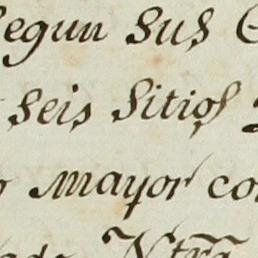 Segun sus
seis sitios
mayor co
Ntra